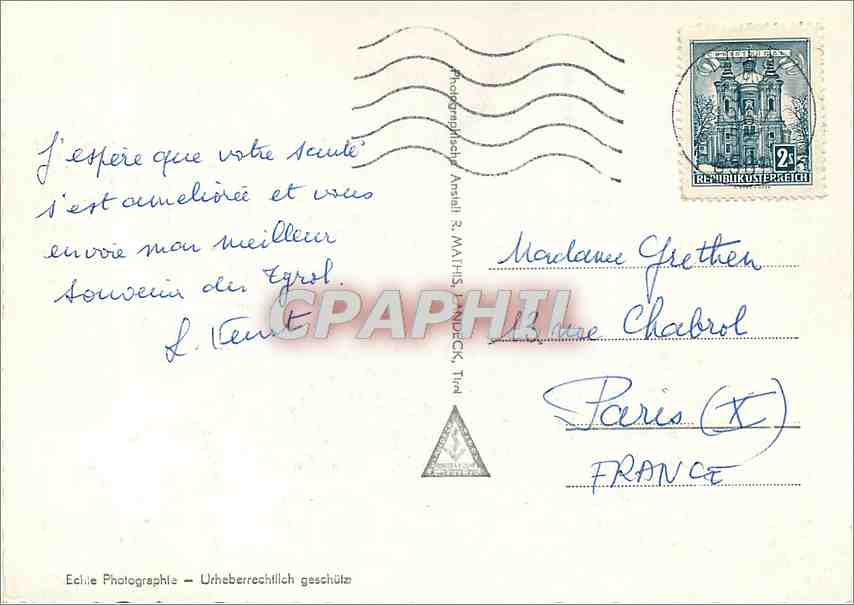 J'espère que votre santé
s'est ameliorée et vous
envoie mon meilleur
souvenir du Tyrol.
Photographische Anstalt R. MATHIS, LANDECK, Tirol
2s
REPUBLIK ÖSTERREICH
Madame Grethen
13, rue Chabrol
Paris (X)
FRANCE
CPAPHIL
Echte Photographie – Urheberrechtlich geschützt